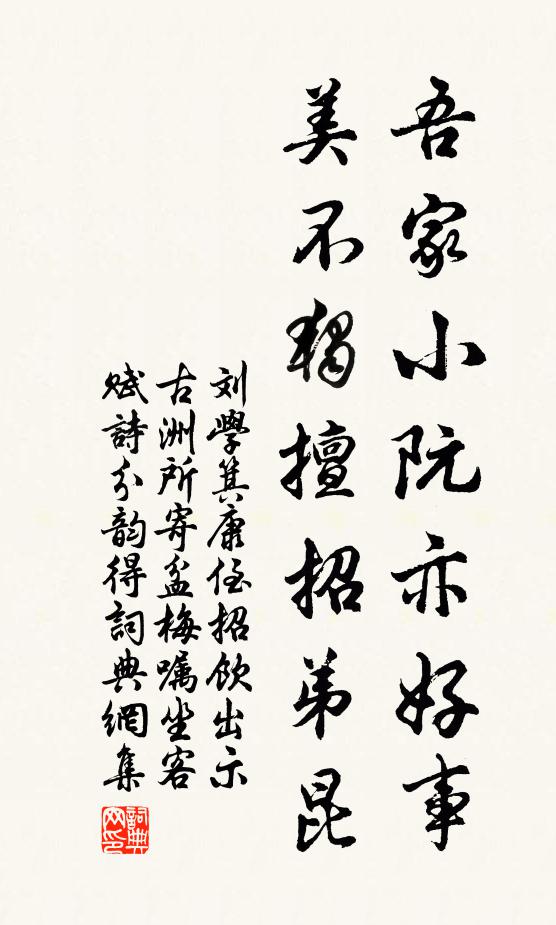 吾家小阮亦好事
美不獨擅招弟昆
刘學箕康侄招飲出示
古洲所寄盆梅嘱坐客
赋詩分韵得詞典網集
詞典网印